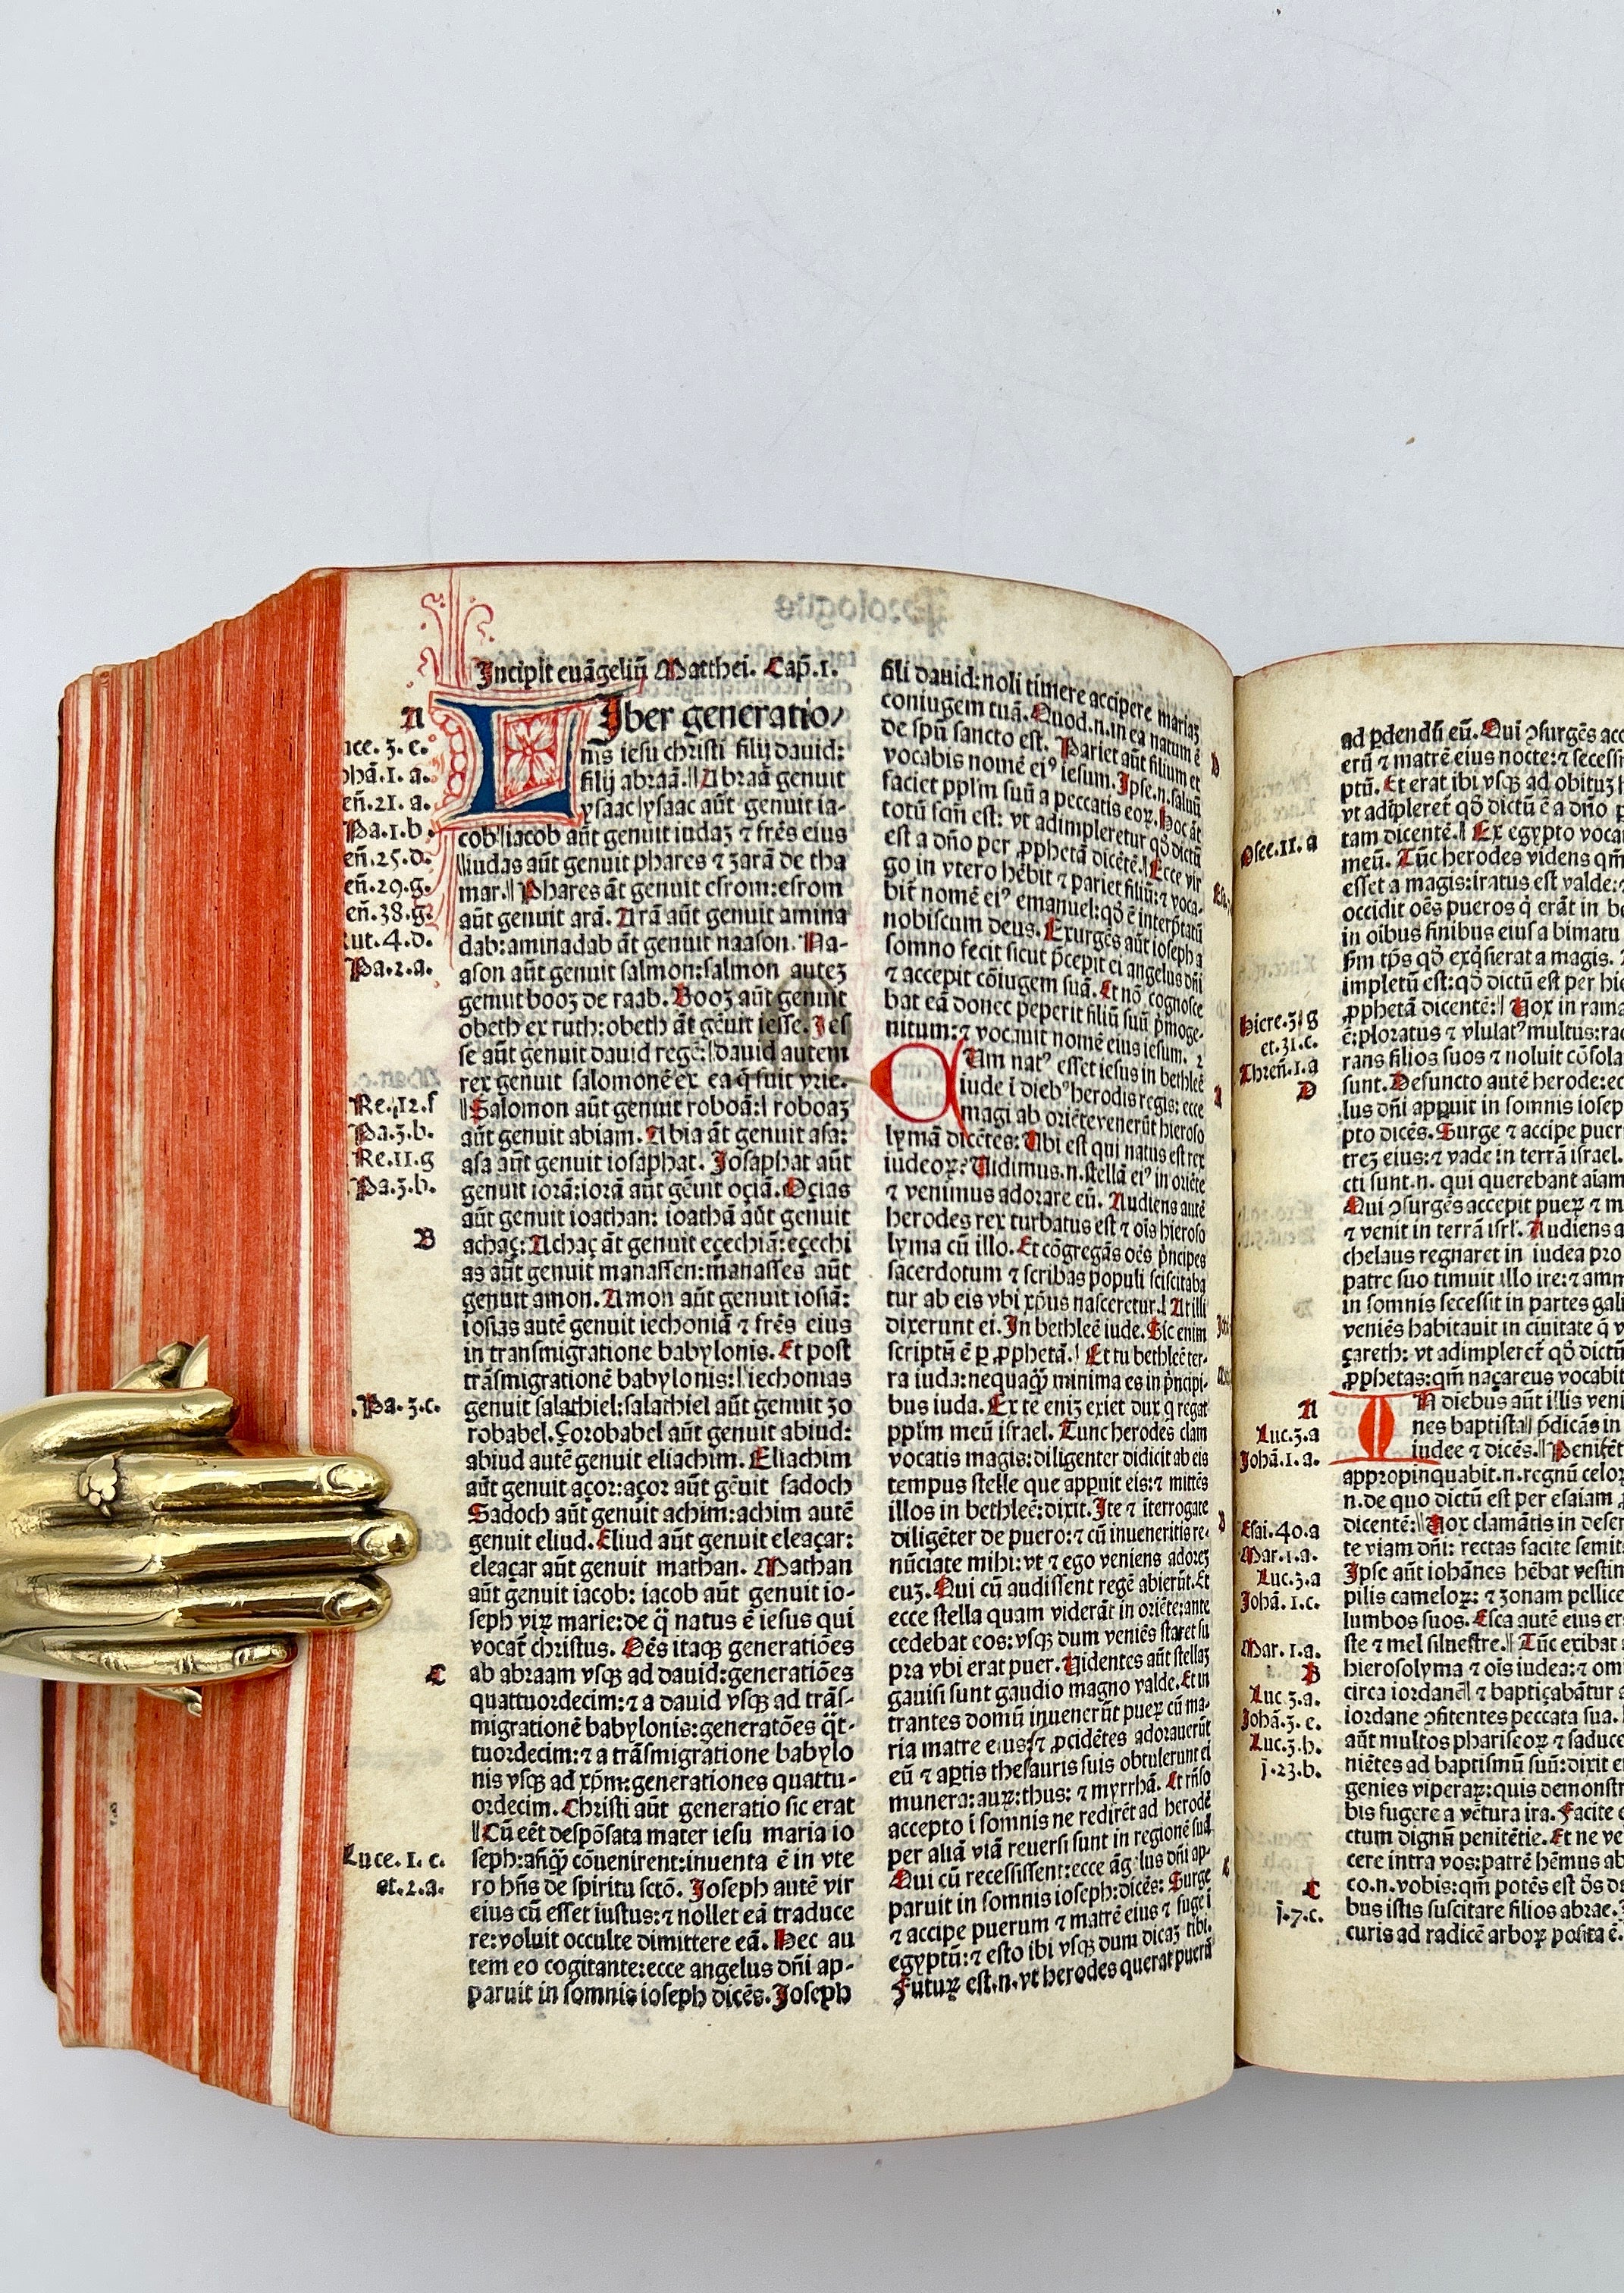 Incipit euāgeliū Matthei. Cap.1.
LIber generatio/
nis iesu christi filij dauid:
filij abraā. Abraā genuit
ysaac ysaac aūt genuit ia-
cob iacob aūt genuit iudaʒ ⁊ frēs eius
iudas aūt genuit phares ⁊ ʒarā de tha
mar. Phares āt genuit esrom: esrom
aūt genuit arā. Arā aūt genuit amina
dab: aminadab āt genuit naason. Na-
ason aūt genuit salmon: salmon auteʒ
genuit booʒ de raab. Booʒ aūt genuit
obeth ex ruth: obeth āt gēuit iesse. Jes
se aūt genuit dauid regē: dauid autem
rex genuit salomonē ex ea q̄ fuit vrie.
Salomon aūt genuit roboā: roboaʒ
aūt genuit abiam. Abia āt genuit asa:
asa aūt genuit iosaphat. Josaphat aūt
genuit iorā: iorā aūt gēuit oçiā. Oçias
aūt genuit ioathan: ioathā aūt genuit
achaç: Achaç āt genuit eçechiā: eçechi
as aūt genuit manassen: manasses aūt
genuit amon. Amon aūt genuit iosiā:
iosias autē genuit iechoniā ⁊ frēs eius
in transmigratione babylonis. Et post
trāsmigrationē babylonis: iechonias
genuit salathiel: salathiel aūt genuit ʒo
robabel. Çorobabel aūt genuit abiud:
abiud autē genuit eliachim. Eliachim
aūt genuit açor: açor aūt gēuit sadoch
Sadoch aūt genuit achim: achim autē
genuit eliud. Eliud aūt genuit eleaçar:
eleaçar aūt genuit mathan. Mathan
aūt genuit iacob: iacob aūt genuit io-
seph viꝝ marie: de q̄ natus ē iesus qui
vocat̄ christus. Oēs itaqꝫ generatiōes
ab abraam vsqꝫ ad dauid: generatiōes
quattuordecim: ⁊ a dauid vsqꝫ ad trās-
migrationē babylonis: generatōes q̄t-
tuordecim: ⁊ a trāsmigratione babylo
nis vsqꝫ ad xp̄m: generationes quattu-
ordecim. Christi aūt generatio sic erat
Cū eēt despōsata mater iesu maria io
seph: añq̄ꝫ cōuenirent: inuenta ē in vte
ro hñs de spiritu sctō. Joseph autē vir
eius cū esset iustus: ⁊ nollet eā traduce
re: voluit occulte dimittere eā. Hec au
tem eo cogitante: ecce angelus dñi ap-
paruit in somnis ioseph dicēs. Joseph
A
ce. 3. c.
hā. 1. a.
eñ. 21. a.
Pa. 1. b.
eñ. 25. d.
eñ. 29. g.
eñ. 38. g.
ut. 4. d.
Pa. 2. a.
Re. 12. f
Pa. 3. b.
Re. 11. g
Pa. 3. b.
B
Pa. 3. c.
C
Luce. 1. c.
et. 2. a.
fili dauid: noli timere accipere mariaʒ
coniugem tuā. Quod .n. in ea natum ē
de spū sancto est. Pariet aūt filium et
vocabis nomē eiꝰ iesum. Ipse .n. saluū
faciet pplm̄ suū a peccatis eoꝝ. Hoc āt
totū scm̄ est: vt adimpleretur qð dictū
est a dño per ꝓphetā dicētē. Ecce vir
go in vtero hēbit ⁊ pariet filiū: ⁊ voca-
bit̄ nomē eiꝰ emanuel: qð ē interp̄tatū
nobiscum deus. Exurgēs aūt ioseph a
somno fecit sicut p̄cepit ei angelus dñi
⁊ accepit cōiugem suā. Et nō cognosce
bat eā donec peperit filiū suū p̄moge-
nitum: ⁊ vocauit nomē eius iesum. 2
CUm natꝰ esset iesus in bethleē
iude ī diebꝰ herodis regis: ecce
magi ab oriēte venerūt hieroso
lymā dicētes: Ubi est qui natus est rex
iudeoꝝ? Uidimus .n. stellā eiꝰ in oriēte
⁊ venimus adorare eū. Audiens autē
herodes rex turbatus est ⁊ oīs hieroso
lyma cū illo. Et cōgregās oēs p̄ncipes
sacerdotum ⁊ scribas populi sciscitaba
tur ab eis vbi xp̄us nasceretur. At illi
dixerunt ei. In bethleē iude. Sic enim
scriptū ē ꝑ ꝓphetā. Et tu bethleē ter-
ra iuda: nequaq̄ꝫ minima es in p̄ncipi-
bus iuda. Ex te eniʒ exiet dux q̄ regat
pplm̄ meū israel. Tunc herodes clam
vocatis magis: diligenter didicit ab eis
tempus stelle que appuit eis: ⁊ mittēs
illos in bethleē: dixit. Ite ⁊ īterrogate
diligēter de puero: ⁊ cū inueneritis re-
nūciate mihi: vt ⁊ ego veniens adoreʒ
euʒ. Qui cū audissent regē abierūt. Et
ecce stella quam viderāt in oriēte: ante
cedebat eos: vsqꝫ dum veniēs staret su
pra vbi erat puer. Videntes aūt stellaʒ
gauisi sunt gaudio magno valde. Et in
trantes domū inuenerūt pueꝝ cū ma-
ria matre eius: ⁊ ꝓcidētes adorauerūt
eū ⁊ aꝑtis thesauris suis obtulerunt ei
munera: auꝝ: thus: ⁊ myrrhā. Et rñso
accepto ī somnis ne redirēt ad herodē
per aliā viā reuersi sunt in regionē suā
Qui cū recessissent: ecce āgelus dñi ap-
paruit in somnis ioseph: dicēs: Surge
⁊ accipe puerum ⁊ matrē eius ⁊ fuge ī
egyptū: ⁊ esto ibi vsqꝫ dum dicaʒ tibi.
Futuꝝ est .n. vt herodes querat puerū
Osee. 11. a
Hiere. 31 g
et. 31. c.
Threñ. 1. a
D
A
Luc. 3. a
Johā. 1. a.
Esai. 40. a
Mar. 1. a.
Luc. 3. a
Johā. 1. c.
Mar. 1. a.
B
Luc 3. a.
Johā. 3. e.
Luc. 3. b.
j. 23. b.
C
j. 7. c.
ad ꝑdendū eū. Qui ↄsurgēs
erū ⁊ matrē eius nocte: ⁊
ptū. Et erat ibi vsqꝫ ad obituʒ
vt adīpleret̄ qð dictū ē a dño
tam dicentē. Ex egypto
meū. Tūc herodes videns qm̄
esset a magis: iratus est valde:
occidit oēs pueros q̄ erāt in
in oibus finibus eius a bimatu
ẜm tp̄s qð exq̄sierat a magis.
impletū est: qð dictū est per
ꝓphetā dicentē: Vox in rama
ē: ploratus ⁊ vlulatꝰ multus:
rans filios suos ⁊ noluit
sunt. Defuncto autē herode:
lus dñi appuit in somnis
pto dicēs. Surge ⁊ accipe
treʒ eius: ⁊ vade in terrā israel.
cti sunt .n. qui querebant aīam
Qui ↄsurgēs accepit pueꝝ ⁊
⁊ venit in terrā isrl'. Audiens
chelaus regnaret in iudea pro
patre suo timuit illo ire: ⁊
in somnis secessit in partes
veniēs habitauit in ciuitate q̄
çareth: vt adimpleret̄ qð
ꝓphetas: qm̄ naçareus
IN diebus aūt illis
nes baptista p̄dicās in
iudee ⁊ dicēs.
appropinquabit .n. regnū
n. de quo dictū est per esaiam
dicentē: Vox clamātis in
te viam dñi: rectas facite
Ipse aūt iohānes hēbat
pilis cameloꝝ: ⁊ ʒonam
lumbos suos. Esca autē eius
ste ⁊ mel siluestre. Tūc exibat
hierosolyma ⁊ oīs iudea: ⁊
circa iordanē ⁊ baptiçabātur
iordane ↄfitentes peccata sua.
aūt multos phariseoꝝ ⁊
niētes ad baptismū suū: dixit
genies viperaꝝ: quis
bis fugere a vētura ira. Facite
ctum dignū penitētie. Et ne
cere intra vos: patrē hēmus
co .n. vobis: qm̄ potēs est
bus istis suscitare filios abrae.
curis ad radicē arboꝝ posita ē.